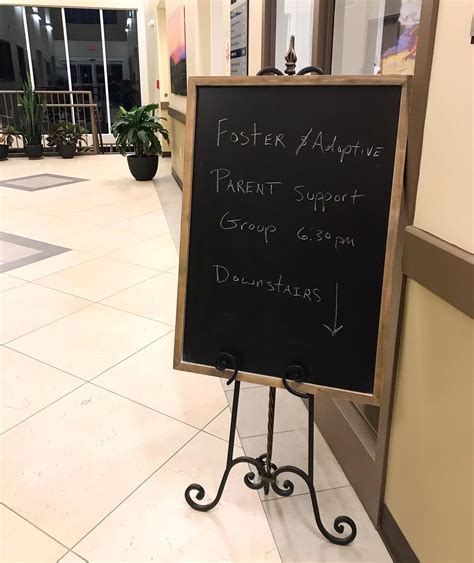 Foster & Adoptive
Parent Support
Group 6:30pm
Downstairs ↓